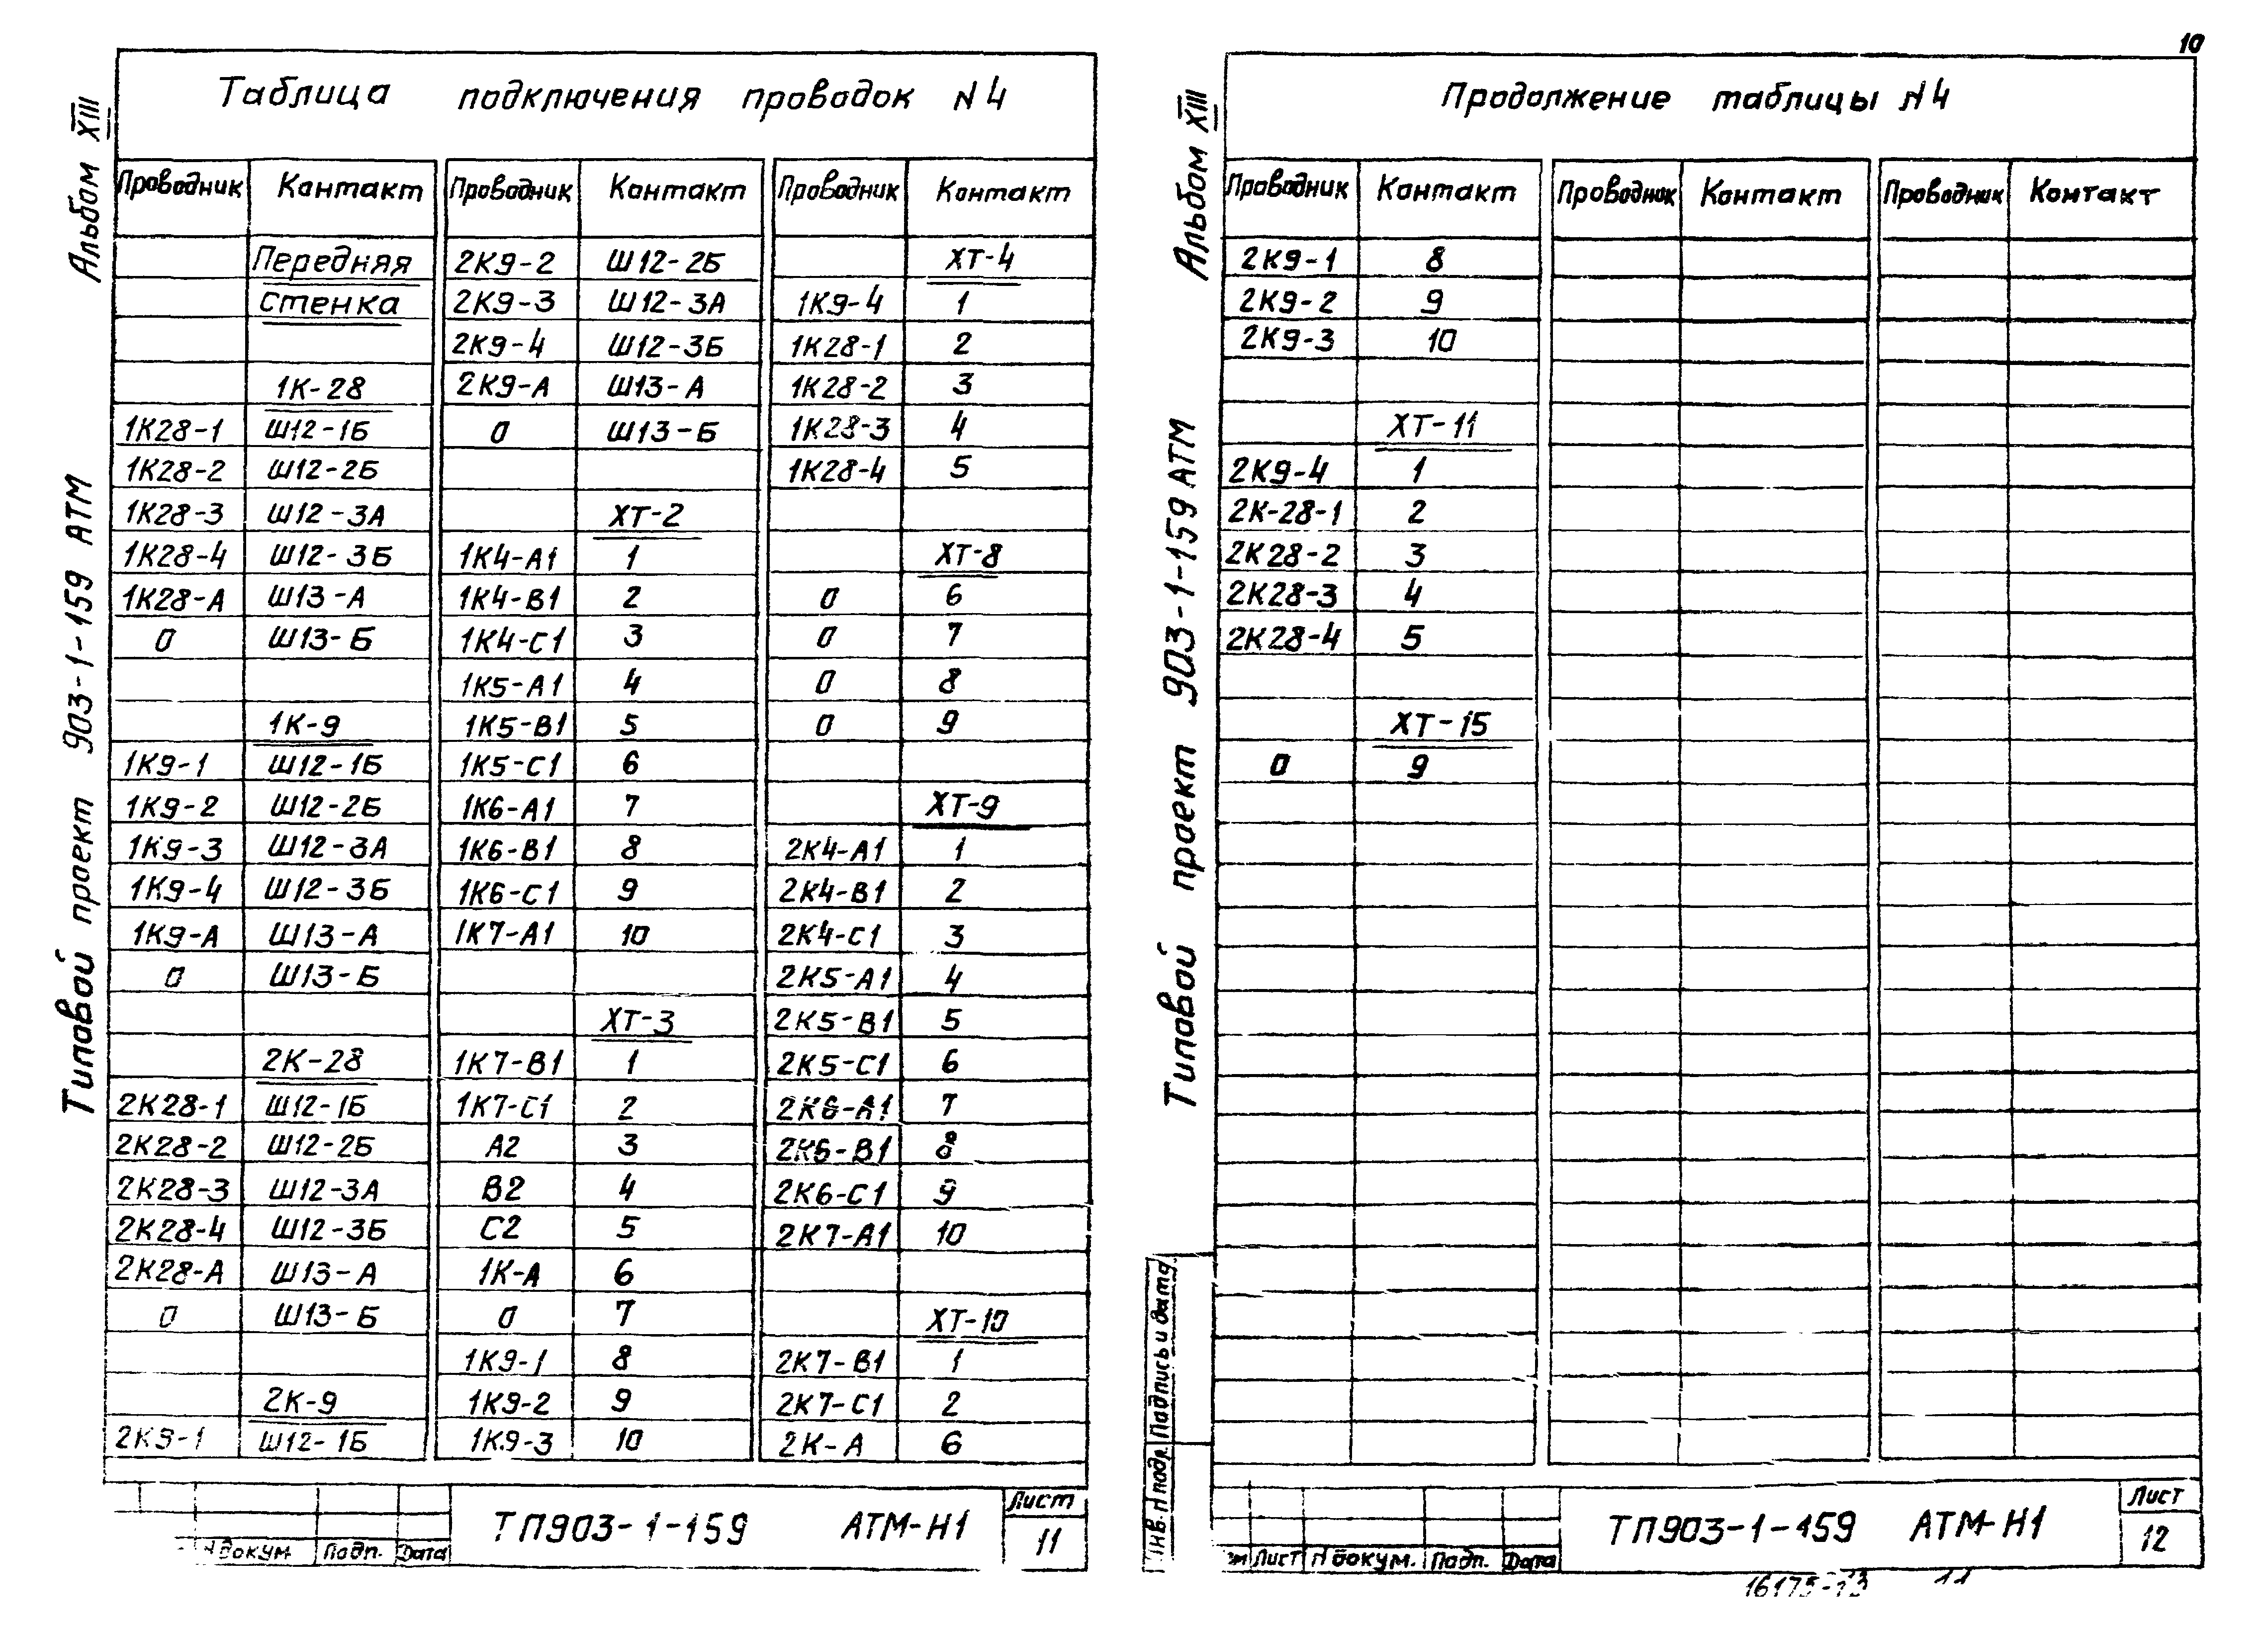 10
Альбом XIII
Типовой проект 903-1-159 АТМ
Таблица подключения проводок N4
Проводник Контакт Проводник Контакт Проводник Контакт
Передняя 2К9-2 Ш12-2Б ХТ-4
стенка 2К9-3 Ш12-3А 1К9-4 1
2К9-4 Ш12-3Б 1К28-1 2
1К-28 2К9-А Ш13-А 1К28-2 3
1К28-1 Ш12-1Б 0 Ш13-Б 1К28-3 4
1К28-2 Ш12-2Б 1К28-4 5
1К28-3 Ш12-3А ХТ-2
1К28-4 Ш12-3Б 1К4-А1 1 ХТ-8
1К28-А Ш13-А 1К4-В1 2 0 6
0 Ш13-Б 1К4-С1 3 0 7
1К5-А1 4 0 8
1К-9 1К5-В1 5 0 9
1К9-1 Ш12-1Б 1К5-С1 6
1К9-2 Ш12-2Б 1К6-А1 7 ХТ-9
1К9-3 Ш12-3А 1К6-В1 8 2К4-А1 1
1К9-4 Ш12-3Б 1К6-С1 9 2К4-В1 2
1К9-А Ш13-А 1К7-А1 10 2К4-С1 3
0 Ш13-Б 2К5-А1 4
ХТ-3 2К5-В1 5
2К-28 1К7-В1 1 2К5-С1 6
2К28-1 Ш12-1Б 1К7-С1 2 2К6-А1 7
2К28-2 Ш12-2Б А2 3 2К6-В1 8
2К28-3 Ш12-3А В2 4 2К6-С1 9
2К28-4 Ш12-3Б С2 5 2К7-А1 10
2К28-А Ш13-А 1К-А 6
0 Ш13-Б 0 7 ХТ-10
1К9-1 8 2К7-В1 1
2К-9 1К9-2 9 2К7-С1 2
2К9-1 Ш12-1Б 1К9-3 10 2К-А 6
N докум Подп. Дата
ТП903-1-159 АТМ-Н1
Лист
11
Альбом XIII
Типовой проект 903-1-159 АТМ
Продолжение таблицы N4
Проводник Контакт Проводник Контакт Проводник Контакт
2К9-1 8
2К9-2 9
2К9-3 10
ХТ-11
2К9-4 1
2К-28-1 2
2К28-2 3
2К28-3 4
2К28-4 5
ХТ-15
0 9
Инв. N подр. Подпись и дата
Лист N докум. Подп. Дата
ТП903-1-159 АТМ-Н1
Лист
12
16175-13 11